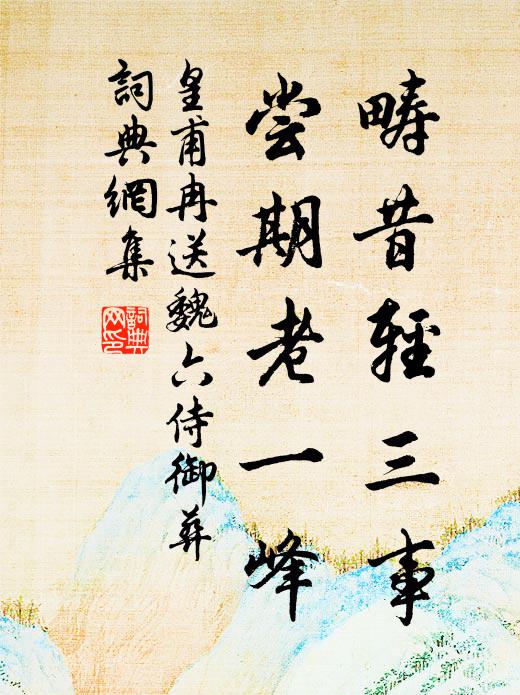 疇昔輕三事
尝期老一峰
皇甫冉送魏六侍御葬
詞典網集
詞典网印